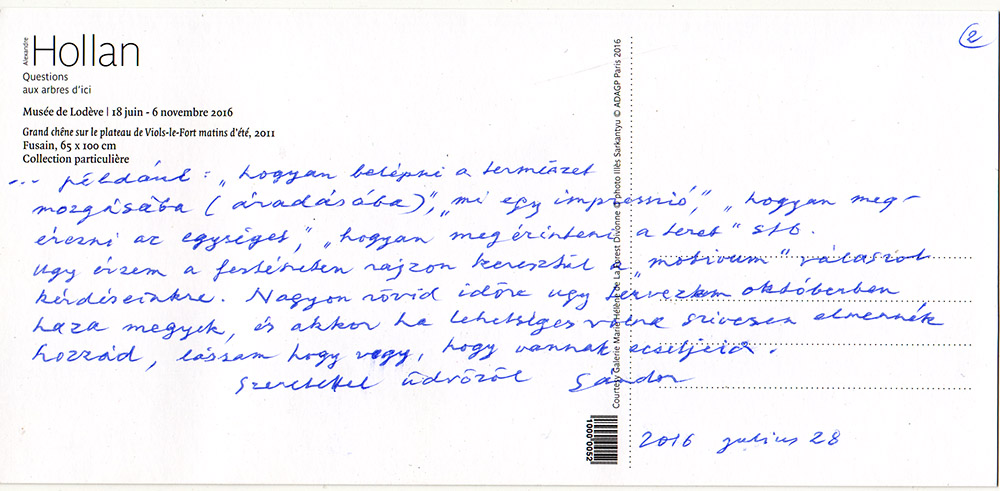 Alexandre
Hollan
Questions
aux arbres d'ici
Musée de Lodève | 18 juin - 6 novembre 2016
Grand chêne sur le plateau de Viols-le-Fort matins d'été, 2011
Fusain, 65 x 100 cm
Collection particulière
2
... például: „hogyan belépni a természet
mozgásába (áradásába)”, „mi egy impresszió,” „hogyan meg-
érezni az egységet,” „hogyan megérinteni a teret” stb.
Ugy érzem a festészetben rajzon keresztül a „motivum” válaszol
kérdéseinkre. Nagyon rövid időre ugy tervezem októberben
haza megyek, és akkor ha lehetséges volna szivesen elmennék
hozzád, lássam hogy vagy, hogy vannak ecseteid.
Szeretettel üdvözöl Sándor
2016 julius 28
Courtesy Galerie Marie Hélène de La Forest Divonne © photo Illés Sarkantyu © ADAGP Paris 2016
10000052